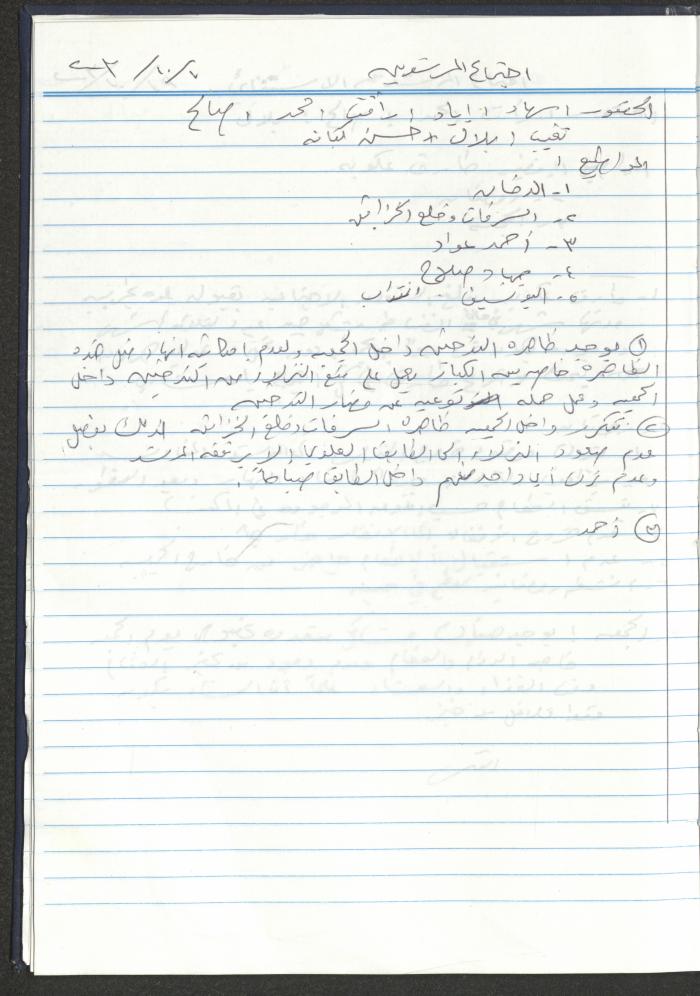 اجتماع المرشدين ٧/١٠/٢٠٠٣
الحضور : سهاد ، اياد ، رأفت ، محمد ، صالح
تغيب : بلال ، حسن لبانه
المواضيع :
١- الدخان
٢- السرقات وخلع الخزائن
٣- أحمد عواد
٤- جهاد صلاح
٥- اليونسيف انتداب
① يوجد ظاهرة التدخين داخل الجمعيه ولعدم امكانية انهاء مثل هذه
الظاهرة خاصة بين الكبار يعمل على منع النزلاء من التدخين داخل
الجمعيه وعمل حمله توعيه عن مضار التدخين
② تتكرر داخل الجمعيه ظاهرة السرقات وخلع الخزائن لذلك يفضل
عدم صعود النزلاء الى الطابق العلوي الا برفقة المرشد
وعدم نزل أي واحد منهم داخل الطابق صباحاً .
③ أحمد